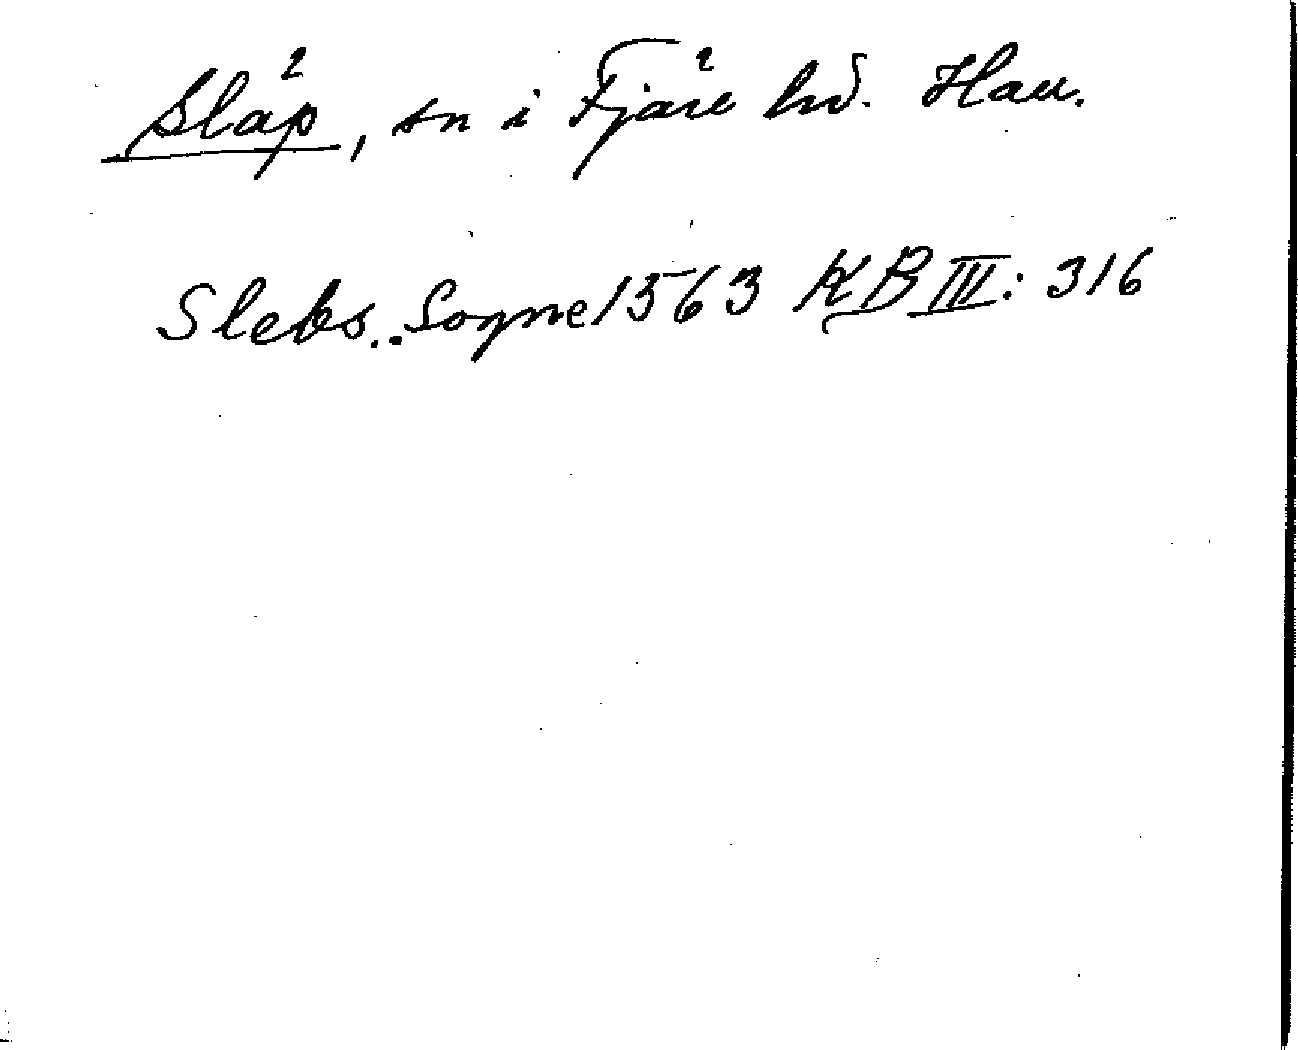 Släp, sn i Fjäre hd. Hall.
Slebs.. Sogne 1563 KB III: 316